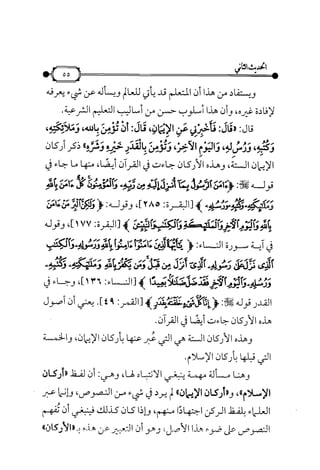 الحديث الثاني
٥٥
ويستفاد من هذا أن المتعلم قد يأتي للعالم ويسأله عن شيء يعرفه
لإفادة غيره، وأن هذا أسلوب حسن من أساليب التعليم الشرعية.
قال: «قال: فَأَخْبِرْنِي عَنِ الإِيمَانِ، قَالَ: أَنْ تُؤْمِنَ بِاللهِ، وَمَلَائِكَتِهِ،
وَكُتُبِهِ، وَرُسُلِهِ، وَالْيَوْمِ الآخِرِ، وَتُؤْمِنَ بِالْقَدَرِ خَيْرِهِ وَشَرِّهِ» ذكر أركان
الإيمان الستة، وهذه الأركان جاءت في القرآن أيضًا، منها ما جاء في
قوله ﷻ: ﴿ءَامَنَ ٱلرَّسُولُ بِمَآ أُنزِلَ إِلَيْهِ مِن رَّبِّهِۦ وَٱلْمُؤْمِنُونَ كُلٌّ ءَامَنَ بِٱللَّهِ
وَمَلَٰٓئِكَتِهِۦ وَكُتُبِهِۦ وَرُسُلِهِۦ﴾ [البقرة: ٢٨٥]، وقوله: ﴿وَلَٰكِنَّ ٱلْبِرَّ مَنْ ءَامَنَ
بِٱللَّهِ وَٱلْيَوْمِ ٱلْـَٔاخِرِ وَٱلْمَلَٰٓئِكَةِ وَٱلْكِتَٰبِ وَٱلنَّبِيِّـۧنَ﴾ [البقرة: ١٧٧]، وقوله
في آية سورة النساء: ﴿يَٰٓأَيُّهَا ٱلَّذِينَ ءَامَنُوٓا۟ ءَامِنُوا۟ بِٱللَّهِ وَرَسُولِهِۦ وَٱلْكِتَٰبِ
ٱلَّذِى نَزَّلَ عَلَىٰ رَسُولِهِۦ وَٱلْكِتَٰبِ ٱلَّذِىٓ أَنزَلَ مِن قَبْلُ وَمَن يَكْفُرْ بِٱللَّهِ وَمَلَٰٓئِكَتِهِۦ وَكُتُبِهِۦ
وَرُسُلِهِۦ وَٱلْيَوْمِ ٱلْـَٔاخِرِ فَقَدْ ضَلَّ ضَلَٰلًۢا بَعِيدًا﴾ [النساء: ١٣٦]، وجاء في
القدر قوله ﷻ: ﴿إِنَّا كُلَّ شَىْءٍ خَلَقْنَٰهُ بِقَدَرٍ﴾ [القمر: ٤٩]. يعني أن أصول
هذه الأركان جاءت أيضًا في القرآن.
وهذه الأركان الستة هي التي عُبر عنها بأركان الإيمان، والخمسة
التي قبلها بأركان الإسلام.
وهنا مسألة مهمة ينبغي الانتباه لها، وهي: أن لفظ «أركان
الإسلام»، و«أركان الإيمان» لم يرد في شيء من النصوص، وإنما عبر
العلماء بلفظ الركن اجتهادًا منهم، وإذا كان كذلك فينبغي أن تُفهم
النصوص على ضوء هذا الأصل، وهو أن التعبير عن هذه بـ «الأركان»